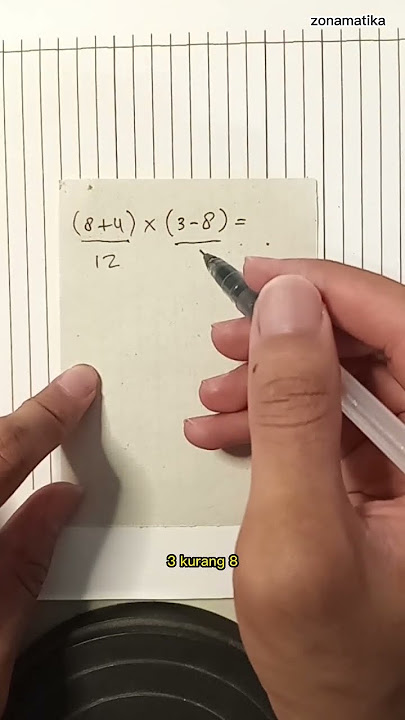 zonamatika
(8+4) × (3-8) = . .
12
3 kurang 8